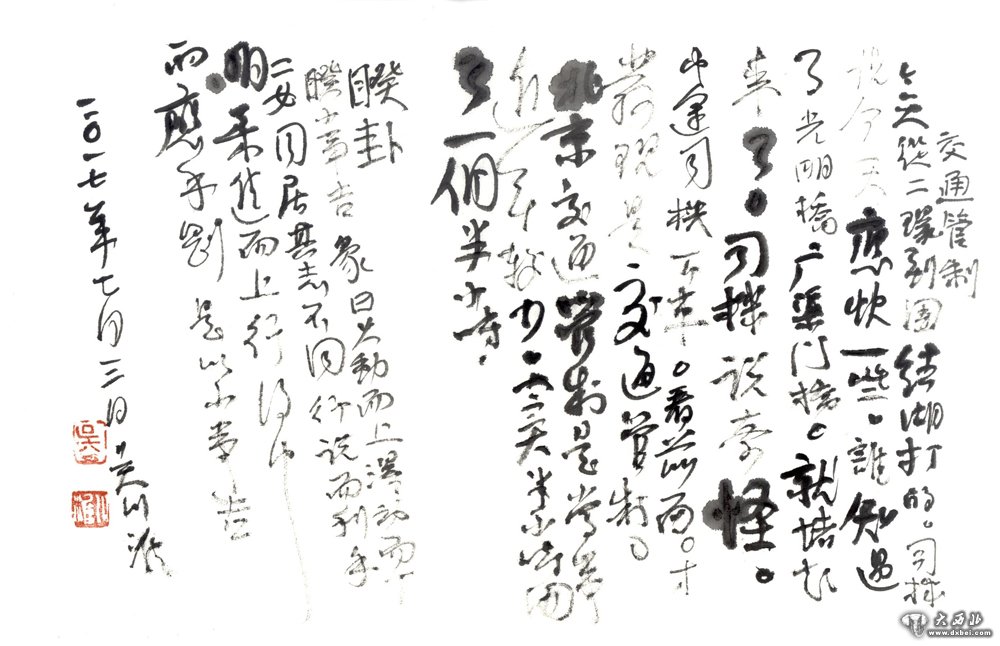 交通管制
今天從二環到團結湖打的。司機
說今天應快一些。誰知過
了光明橋廣渠門橋。就堵起
車了。司機說奇怪。
中途司機下車。看前面。才
發現是交通管制。
北京交通管制是常事
了一個半小時。
睽卦
睽小事吉 彖曰火動而上澤動而下
二女同居其志不同行說而麗乎
明柔進而上行得中
而應乎剛 是以小事吉
二〇一七年七月三日 吴川淮
大西北
www.dxbei.com